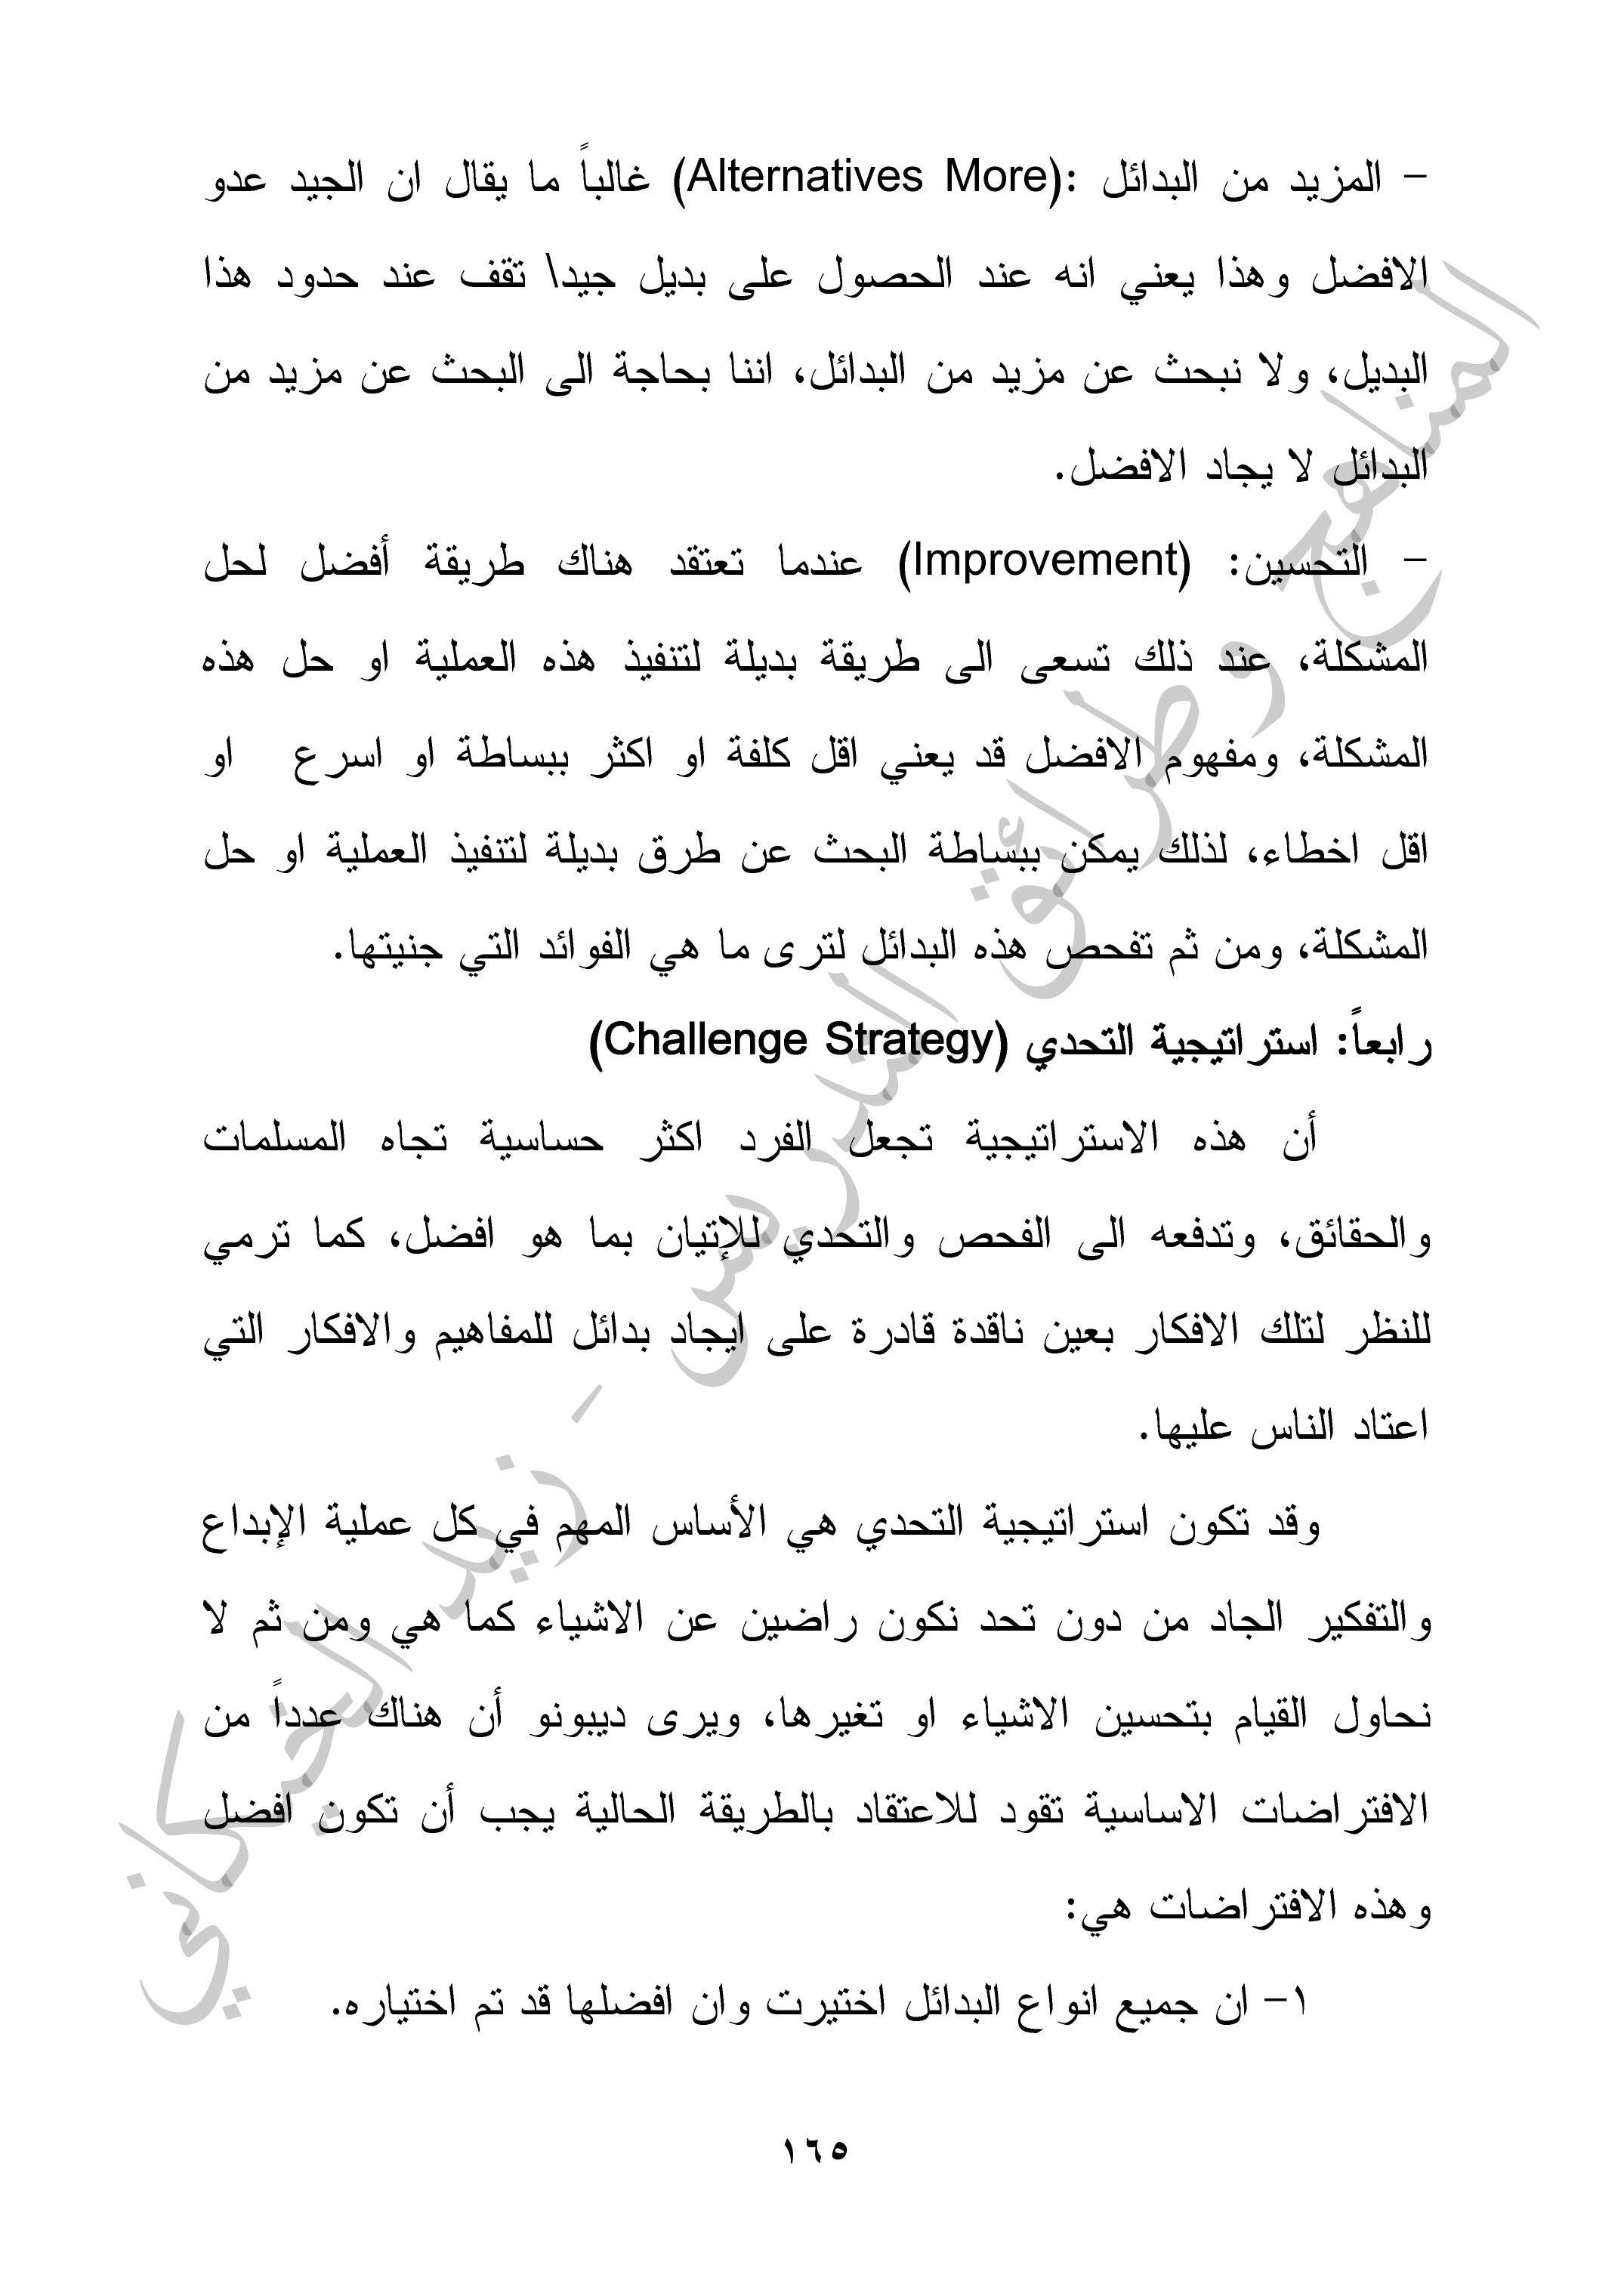 - المزيد من البدائل :(Alternatives More) غالباً ما يقال ان الجيد عدو
الافضل وهذا يعني انه عند الحصول على بديل جيد\ تقف عند حدود هذا
البديل، ولا نبحث عن مزيد من البدائل، اننا بحاجة الى البحث عن مزيد من
البدائل لا يجاد الافضل.
- التحسين: (Improvement) عندما تعتقد هناك طريقة أفضل لحل
المشكلة، عند ذلك تسعى الى طريقة بديلة لتنفيذ هذه العملية او حل هذه
المشكلة، ومفهوم الافضل قد يعني اقل كلفة او اكثر ببساطة او اسرع او
اقل اخطاء، لذلك يمكن ببساطة البحث عن طرق بديلة لتنفيذ العملية او حل
المشكلة، ومن ثم تفحص هذه البدائل لترى ما هي الفوائد التي جنيتها.
رابعاً: استراتيجية التحدي (Challenge Strategy)
أن هذه الاستراتيجية تجعل الفرد اكثر حساسية تجاه المسلمات
والحقائق، وتدفعه الى الفحص والتحدي للإتيان بما هو افضل، كما ترمي
للنظر لتلك الافكار بعين ناقدة قادرة على ايجاد بدائل للمفاهيم والافكار التي
اعتاد الناس عليها.
وقد تكون استراتيجية التحدي هي الأساس المهم في كل عملية الإبداع
والتفكير الجاد من دون تحد نكون راضين عن الاشياء كما هي ومن ثم لا
نحاول القيام بتحسين الاشياء او تغيرها، ويرى ديبونو أن هناك عدداً من
الافتراضات الاساسية تقود للاعتقاد بالطريقة الحالية يجب أن تكون افضل
وهذه الافتراضات هي:
١- ان جميع انواع البدائل اختيرت وان افضلها قد تم اختياره.
١٦٥
المناهج وطرائق التدريس - زيد الخيكاني